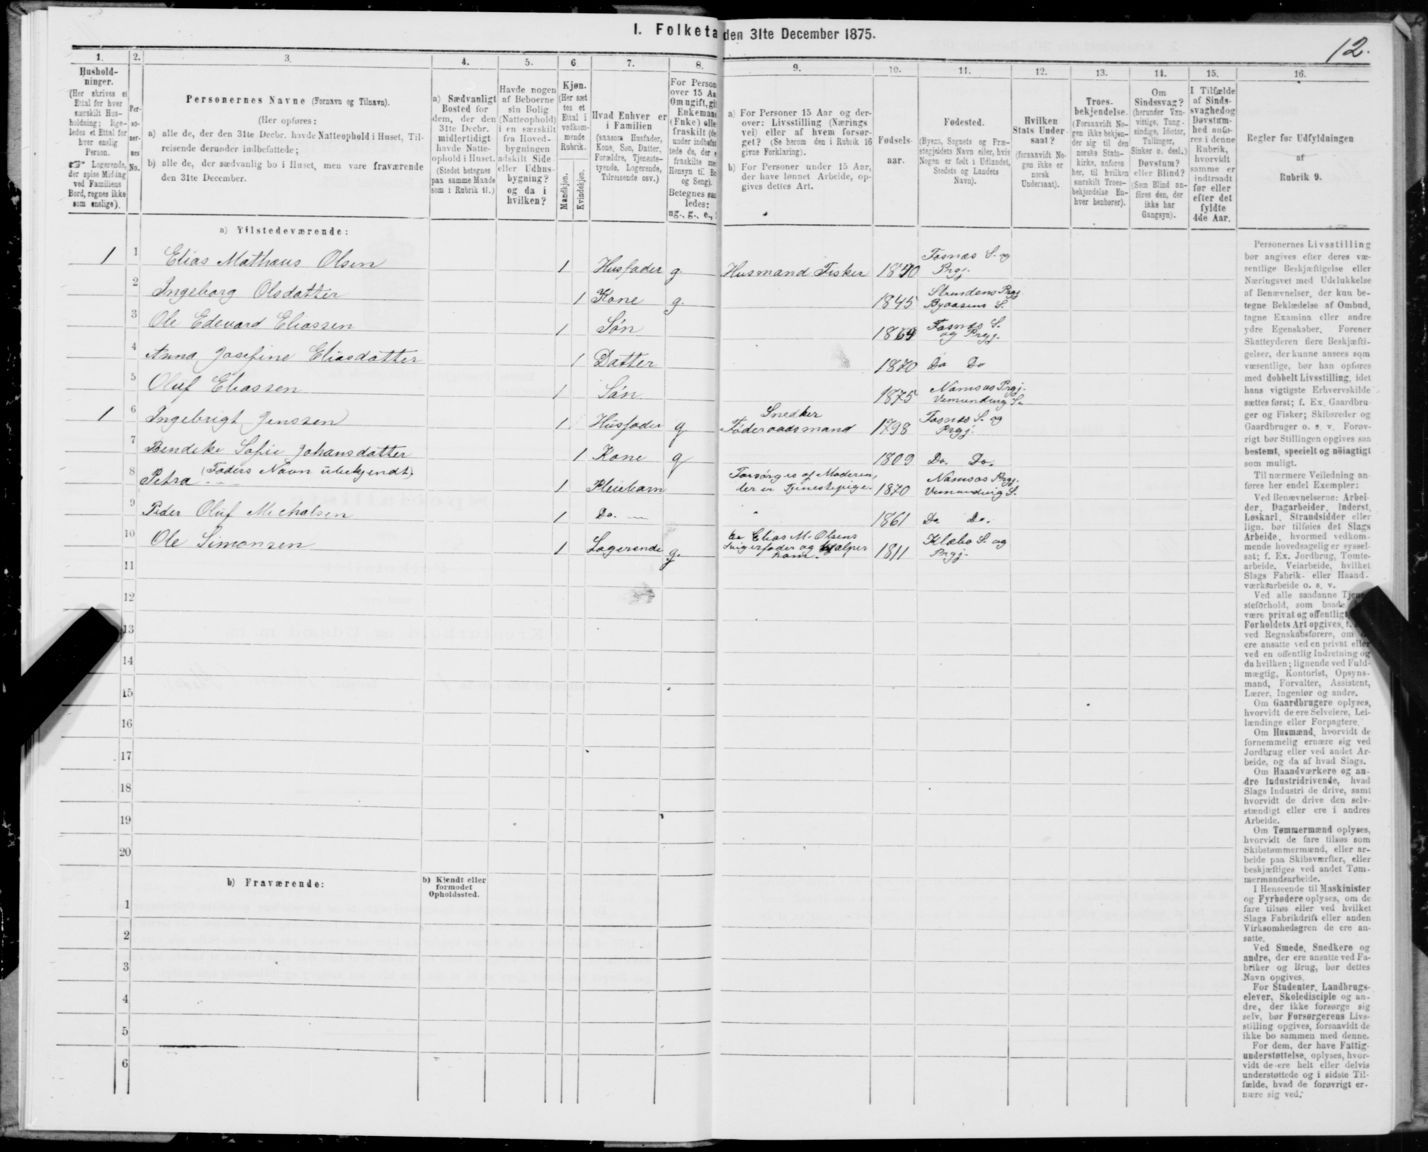 I. Folketa den 31te December 1875.
12.
1.
Hushold-
ninger.
(Her skrives et
Ettal for hver
særskilt Hus-
holdning; lige-
ledes et Ettal for
hver enslig
Person.
☞ Logerende,
der spise Middag
ved Familiens
Bord, regnes ikke
som enslige).
2.
Per-
so-
ner-
nes
No.
3.
Personernes Navne (Fornavn og Tilnavn).
(Her opføres:
a) alle de, der den 31te Decbr. havde Natteophold i Huset, Til-
reisende derunder indbefattede;
b) alle de, der sædvanlig bo i Huset, men vare fraværende
den 31te December.
4.
a) Sædvanligt
Bosted for
dem, der den
31te Decbr.
midlertidigt
havde Natte-
ophold i Huset.
(Stedet betegnes
paa samme Maade
som i Rubrik 11.)
5.
Havde nogen
af Beboerne
sin Bolig
(Natteophold)
i en særskilt
fra Hoved-
bygningen
adskilt Side
eller Udhus-
bygning?
og da i
hvilken?
6
Kjøn.
(Her sæt-
tes et
Ettal i
vedkom-
mende
Rubrik.
Mandkjøn.
Kvindekjøn.
7.
Hvad Enhver er
i Familien
(saasom Husfader,
Kone, Søn, Datter,
Forældre, Tjeneste-
tyende, Logerende,
Tilreisende osv.)
8.
For Person
over 15 Aa
Om ugift, gi
Enkemand
(Enke) elle
fraskilt
Betegnes saa
ledes:
ug., g., e.,
9.
a) For Personer 15 Aar og der-
over: Livsstilling (Nærings
vei) eller af hvem forsør-
get? (Se herom den i Rubrik 16
givne Forklaring).
b) For Personer under 15 Aar,
der have lønnet Arbeide, op-
gives dettes Art.
10.
Fødsels-
aar.
11.
Fødested.
(Byens, Sognets og Præ-
stegjeldets Navn eller, hvis
Nogen er født i Udlandet,
Stedets og Landets
Navn).
12.
Hvilken
Stats Under-
saat?
(forsaavidt No-
gen ikke er
norsk
Undersaat).
13.
Troes-
bekjendelse.
(Forsaavidt No-
gen ikke bekjen-
der sig til den
norske Stats-
kirke, anføres
her, til hvilken
særskilt Troes-
bekjendelse En-
hver henhører).
14.
Om
Sindssvag?
(herunder Van-
vittige, Tung-
sindige, Idioter,
Tullinger,
Sinker o. desl.)
Døvstum?
eller Blind?
(Som Blind an-
føres den, der
ikke har
Gangsyn).
15.
I Tilfælde
af Sinds-
svaghed og
Døvstum-
hed anfø-
res i denne
Rubrik,
hvorvidt
samme er
indtraadt
før eller
efter det
fyldte
4de Aar.
16.
Regler for Udfyldningen
af
Rubrik 9.
a) Tilstedeværende:
1 1 Elias Mathæus Olsen 1 Husfader g Husmand Fisker 1840 Fosnæs S. og Prgj.
2 Ingeborg Olsdatter 1 Kone g 1845 Strindens Prgj Byaasens S.
3 Ole Edevard Eliassen 1 Søn 1869 Fosnæs S. og Prgj.
4 Anna Josefine Eliasdatter 1 Datter 1870 Do Do
5 Oluf Eliassen 1 Søn 1875 Namsos Prgj. Vemundvig S.
1 6 Ingebrigt Jenssen 1 Husfader g Snedker Føderaadsmand 1798 Fosnæs S. og Prgj.
7 Bendikte Sofie Johansdatter 1 Kone g 1809 Do. Do.
8 Petra (Faders Navn ubekjendt) 1 Pleiebarn Forsørges af Moderen, der er Tjenestepige. 1870 Namsos Prgj. Vemundvig S.
9 Peder Oluf Michalsen 1 Do. 1861 Do Do.
10 Ole Simonsen 1 Logerende g Er Elias M. Olsens Svigerfader og hjælper ham. 1811 Klæbo S. og Prgj.
11
12
13
14
15
16
17
18
19
20
b) Fraværende:
b) Kjendt eller
formodet
Opholdssted.
1
2
3
4
5
6
Personernes Livsstilling
bør angives efter deres væ-
sentlige Beskjæftigelse eller
Næringsvei med Udelukkelse
af Benævnelser, der kun be-
tegne Beklædelse af Ombud,
tagne Examina eller andre
ydre Egenskaber. Forener
Skatteyderen flere Beskjæfti-
gelser, der kunne ansees som
væsentlige, bør han opføres
med dobbelt Livsstilling, idet
hans vigtigste Erhvervskilde
sættes først; f. Ex. Gaardbru-
ger og Fisker; Skibsreder og
Gaardbruger o. s. v. Forøv-
rigt bør Stillingen opgives saa
bestemt, specielt og nøiagtigt
som muligt.
Til nærmere Veiledning an-
føres her endel Exempler:
Ved Benævnelserne: Arbei-
der, Dagarbeider, Inderst,
Løskarl, Strandsidder eller
lign. bør tilføies det Slags
Arbeide, hvormed vedkom-
mende hovedsagelig er syssel-
sat; f. Ex. Jordbrug, Tomte-
arbeide, Veiarbeide, hvilket
Slags Fabrik- eller Haand-
værksarbeide o. s. v.
Ved alle saadanne Tjene-
steforhold, som baade
være privat og offentligt,
Forholdets Art opgives,
ved Regnskabsførere, om
ere ansatte ved en privat eller
ved en offentlig Indretning og
da hvilken; lignende ved Fuld-
mægtig, Kontorist, Opsyns-
mand, Forvalter, Assistent,
Lærer, Ingeniør og andre.
Om Gaardbrugere oplyses,
hvorvidt de ere Selveiere, Lei-
lændinge eller Forpagtere.
Om Husmænd, hvorvidt de
fornemmelig ernære sig ved
Jordbrug eller ved andet Ar-
beide, og da af hvad Slags.
Om Haandværkere og an-
dre Industridrivende, hvad
Slags Industri de drive, samt
hvorvidt de drive den selv-
stændigt eller ere i andres
Arbeide.
Om Tømmermænd oplyses,
hvorvidt de fare tilsøs som
Skibstømmermænd, eller ar-
beide paa Skibsværfter, eller
beskjæftiges ved andet Tøm-
mermandsarbeide.
I Henseende til Maskinister
og Fyrbødere oplyses, om de
fare tilsøs eller ved hvilket
Slags Fabrikdrift eller anden
Virksomhedsgren de ere an-
satte.
Ved Smede, Snedkere og
andre, der ere ansatte ved Fa-
briker og Brug, bør dettes
Navn opgives.
For Studenter, Landbrugs-
elever, Skoledisciple og an-
dre, der ikke forsørge sig
selv, bør Forsørgerens Livs-
stilling opgives, forsaavidt de
ikke bo sammen med denne.
For dem, der have Fattig-
understøttelse, oplyses, hvor-
vidt de ere helt eller delvis
understøttede og i sidste Til-
fælde, hvad de forøvrigt er-
nære sig ved.